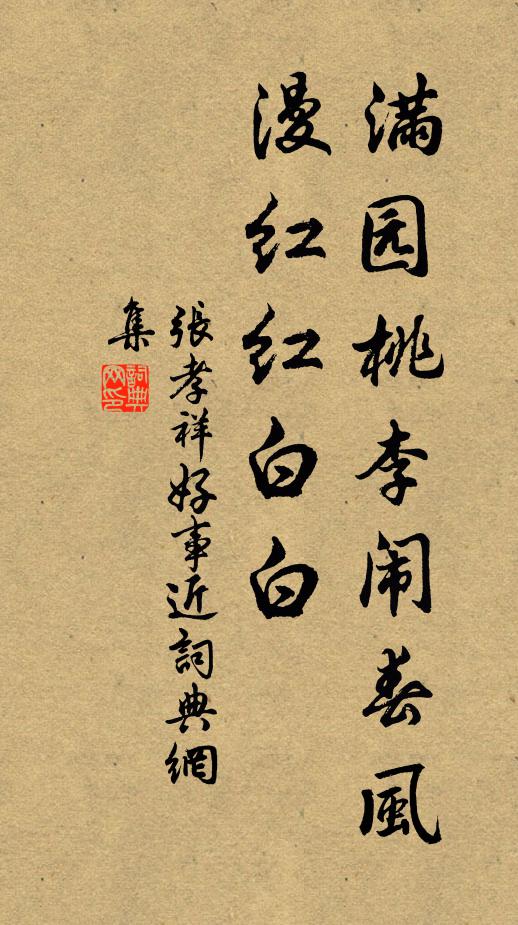 满园桃李闹春風
漫红红白白
張孝祥好事近詞典網
集
詞典網印